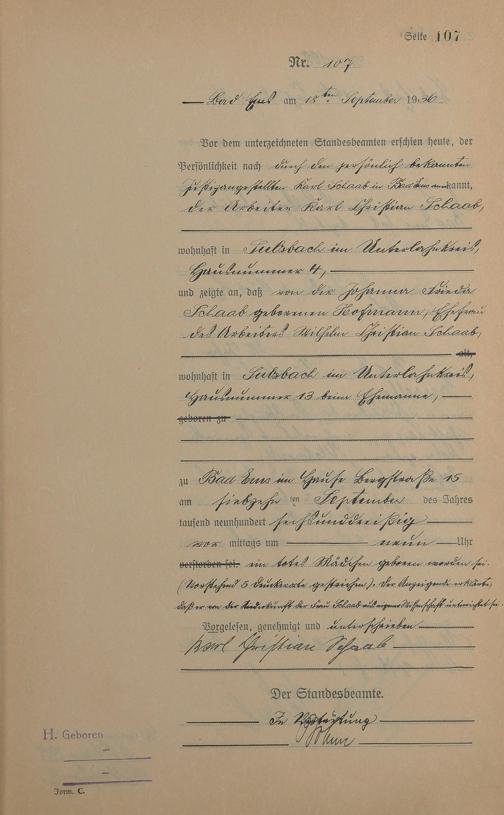 Seite 107
Nr. 107
Bad Ems am 18ten September 1936
Vor dem unterzeichneten Standesbeamten erschien heute, der
Persönlichkeit nach durch den persönlich bekannten
Justizangestellten Karl Schaab in Bad Ems erkannt,
der Arbeiter Karl Christian Schaab,
wohnhaft in Sulzbach im Unterlahnkreis,
Hausnummer 4,
und zeigte an, daß von der Johanna Frieda
Schaab geborenen Hofmann, Ehefrau
des Arbeiters Wilhelm Christian Schaab,
alt,
wohnhaft in Sulzbach im Unterlahnkreis,
Hausnummer 13 beim Ehemanne,
geboren zu
zu Bad Ems im Hause Bergstraße 15
am siebzehnten September des Jahres
tausend neunhundert sechsunddreißig
vor mittags um neun Uhr
verstorben sei. ein totes Mädchen geboren worden sei.
(Vorstehend 5 Druckworte gestrichen). Der Anzeigende erklärte,
daß er von der Niederkunft der Frau Schaab aus eigener Wissenschaft unterrichtet sei.
Vorgelesen, genehmigt und unterschrieben
Karl Christian Schaab
Der Standesbeamte.
In Vertretung
H. Geboren
Form. C.